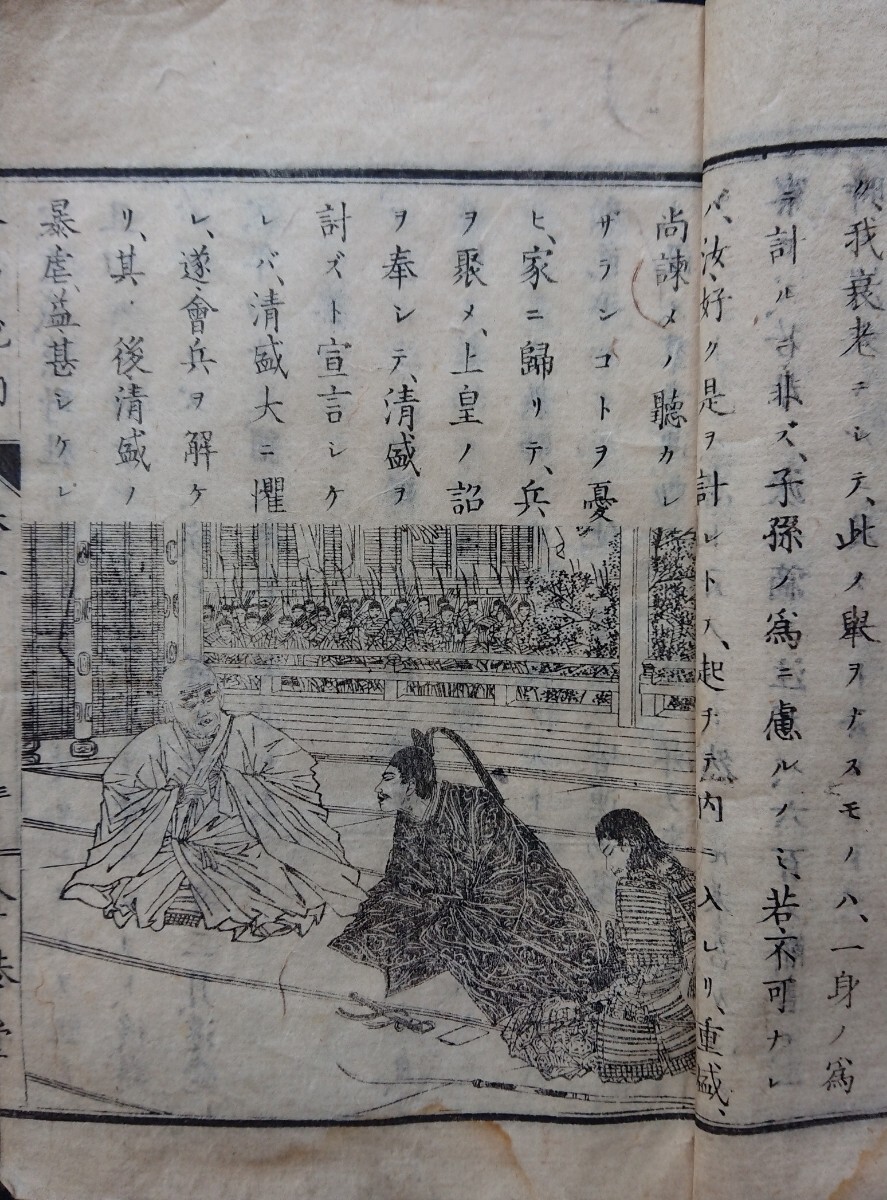 ク、我衰老ニシテ、此ノ擧ヲナスモノハ、一身ノ爲
ニ計ルニ非ズ、子孫ノ爲ニ慮ルノミ、若不可ナレ
バ、汝、好ク是ヲ計レトテ、起チテ、内ヘ入レリ、重盛、
尚諫メノ聽カレ
ザランコトヲ憂
ヒ、家ニ歸リテ、兵
ヲ聚メ、上皇ノ詔
ヲ奉シテ、清盛ヲ
討ズト宣言シケ
レバ、清盛大ニ懼
レ、遂會兵ヲ解ケ
リ、其ノ後清盛ノ
暴虐、益甚シケレ